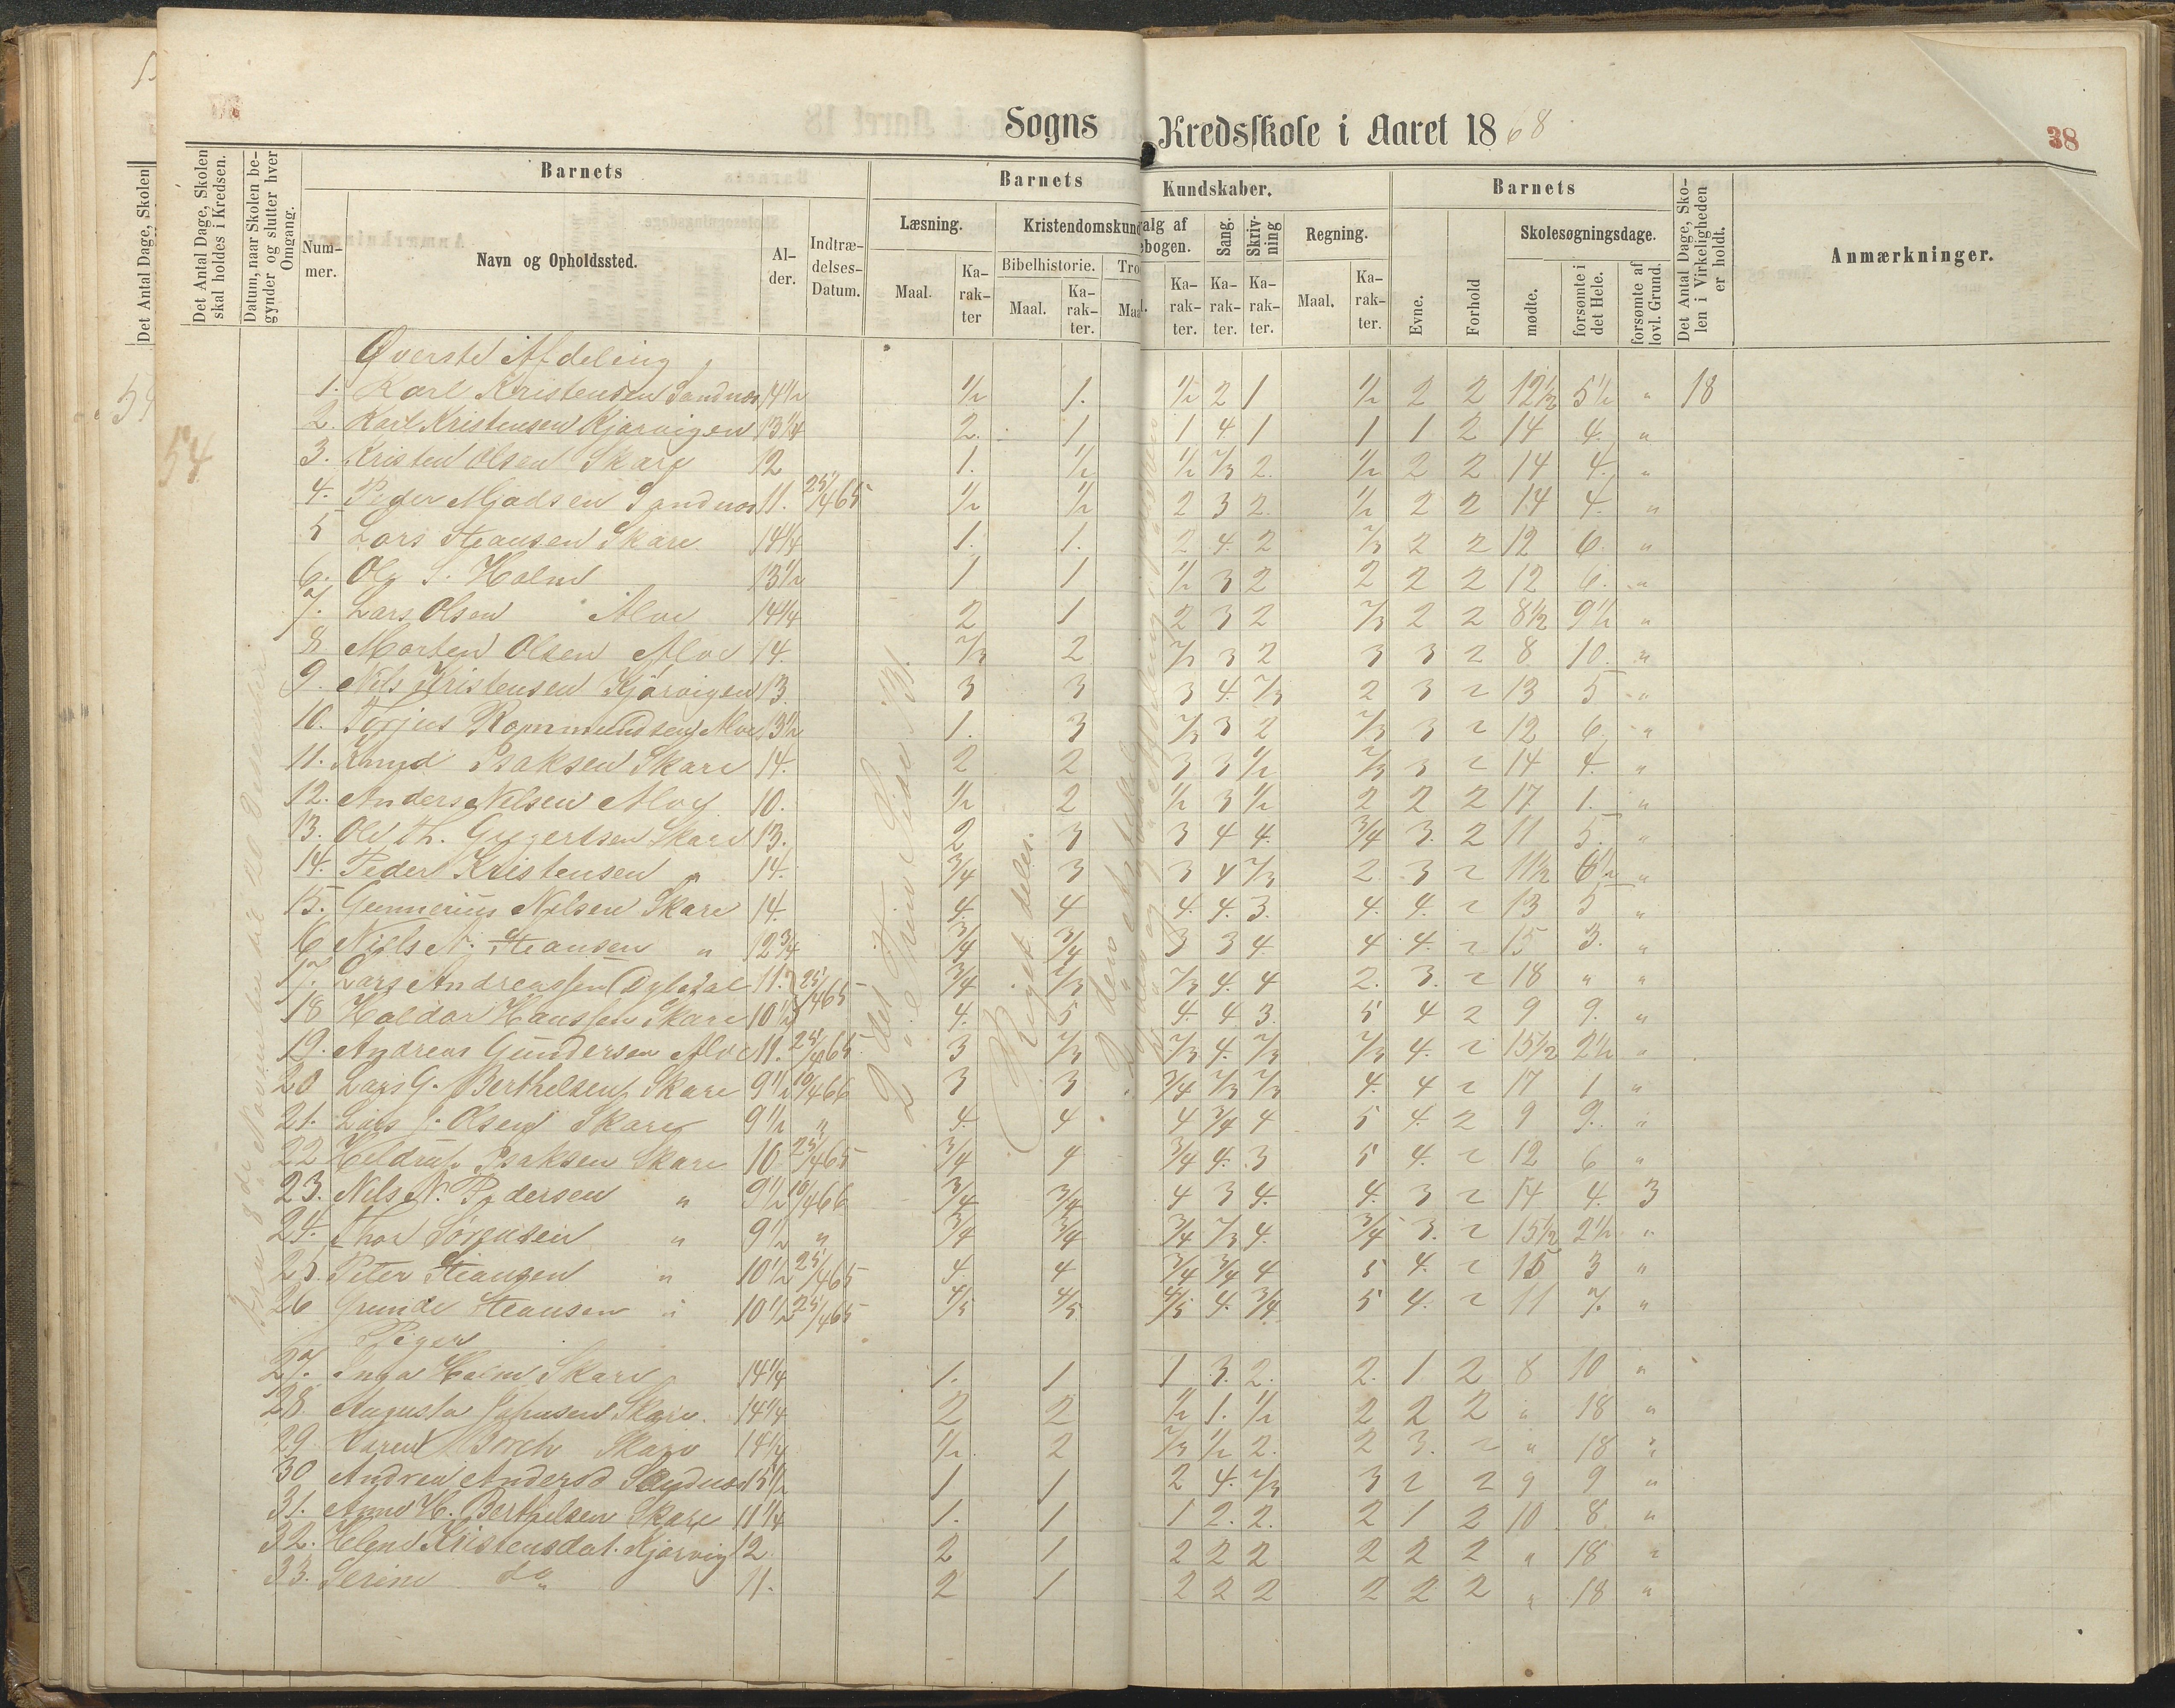 Sogns Kredsskole i Aaret 1868
38
Det Antal Dage, Skolen
54
Det Antal Dage, Skolen skal holdes i Kredsen.
Datum, naar Skolen begynder og slutter hver Omgang.
Barnets
Barnets Kundskaber.
Barnets
Det Antal Dage, Skolen i Virkeligheden er holdt.
Anmærkninger.
Nummer.
Navn og Opholdssted.
Alder.
Indtrædelses-Datum.
Læsning.
Kristendomskund
alg af
ebogen.
Sang.
Skrivning
Regning.
Evne.
Forhold
Skolesøgningsdage.
Maal.
Karakter
Bibelhistorie.
Maal.
Karakter.
Tro
Maal.
Karakter.
Karakter.
Karakter.
Maal.
Karakter.
mødte.
forsømte i det Hele.
forsømte af lovl. Grund.
54
Øverste Afdeling
1. Karl Kristensen Sandnes 14½ ½ 1. ½ 2 1 ½ 2 2 12½ 5½ " 18
2. Karl Kristensen Kjørvigen 13¼ 2. 1 1 4 1 1 1 2 14 4. "
3. Kristen Olsen Skare 12 1. ½ ½ 2/3 2. ½ 2 2 14 4. "
4. Peder Madsen Sandnes 11. 25/4 65 ½ ½ 2 3 2. ½ 2 2 14 4. "
5 Lars Steansen Skare 14¼ 1. 1. 2 4. 2 2/3 2 2 12 6. "
6. Ole S. Holm 13½ 1 1 ½ 3 2 2 2 2 12 6. "
7. Lars Olsen Alve 14¼ 2 1 2 3 2 2/3 2 2 8½ 9½ "
8 Morten Olsen Alve 14. 2/3 2 2/3 3 2 3 3 2 8 10. "
9. Nils Kristensen Kjørvigen 13. 3 3 3 4. 2/3 2 3 2 13 5 "
10. Torjus Rommundsen Alve 13½ 1. 3 2/3 3 2 2/3 3 2 12 6. "
11. Knud Isaksen Skare 14. 2 2 3 3 ½ 2/3 3 2 14 4. "
12. Anders Nilsen Alve 10. ½ 2 ½ 3 ½ 2 2 2 17 1. "
13. Ole Th. Gregertsen Skare 13. 2 3 3 4 4. 3/4 3. 2 11 5. "
14. Peder Kristensen " 14. 3/4 3 3 4 2/3 2. 3 2 11½ 6½ "
15. Gunnerius Nilsen Skare 14. 4. 4 4. 4. 3. 4. 4. 2 13 5 "
16 Niels N. Steansen " 12¾ 3/4 3/4 3 3 4. 4 4. 2 15 3. "
17. Lars Andreassen 11. 25/4 65 3/4 2/3 2/3 4. 4 2. 3. 2 18 " "
18 Haldor Hanssen Skare 10½ 4. 5 4. 4 3. 5 4 2 9 9. "
19. Andreas Gundersen Alve 11. 25/4 65 3 2/3 2/3 4. 2/3 2/3 4. 2 15½ 2½ "
20 Lars G. Berthelsen Skare 9½ 10/4 66 3 3 3/4 2/3 2/3 4. 4 2 17 1 "
21. Lars J. Olsen Skare 9½ " 4. 4 4 3/4 4 5 4. 2 9 9. "
22 Isaksen Skare 10 25/4 65 3/4 4 3/4 4. 3 5 4. 2 12 6 "
23. Nils N. Pedersen " 9½ 10/4 66 3/4 3/4 4 3 4. 4. 3 2 14 4. 3
24. Thor Sørensen " 9½ " 3/4 3/4 3/4 2/3 4. 3/4 3. 2 15½ 2½ "
25. Peter Steansen " 10½ 25/4 65 4 4 3/4 3/4 4 5 4. 2 15 3 "
26 Gunde Steansen " 10½ 25/4 65 4/5 4/5 4/5 4. 3/4 5 4. 2 11 7. "
Piger
27. Inga Holm Skare 14¼ 1. 1 1 3. 2. 2. 1. 2 8 10 "
28. Augusta Johnsen Skare. 14¼ 2 2 ½ 1. ½ 2 2 2 " 18 "
29 Karen Borch Skare 14¼ ½. 2 2/3 ½ 2. 2 3. 2 " 18 "
30 Andrea Andersd Sandnes 15½ 1 1 2 4. 2/3 3 2 2 9 9 "
31. Anne H. Berthelsen Skare 11¼ 1. 1 1 2. 2. 2 1 2 10 8. "
32. Helene Kristensdat. Kjørvig 12. 2 1 2 2 2 2 2 2 " 18 "
33. Serine do 11. 2 1 2 2 2 2 2 2 " 18 "